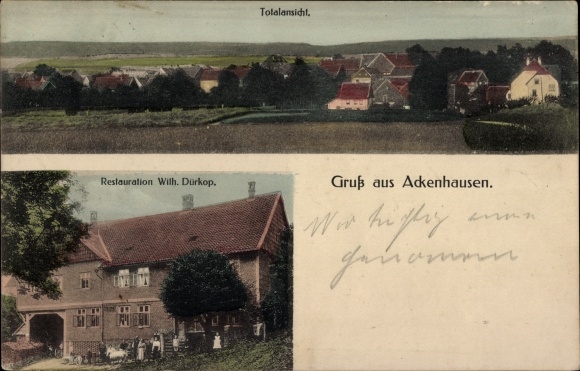 Totalansicht.
Restauration Wilh. Dürkop.
Gruß aus Ackenhausen.
Wir
genommen